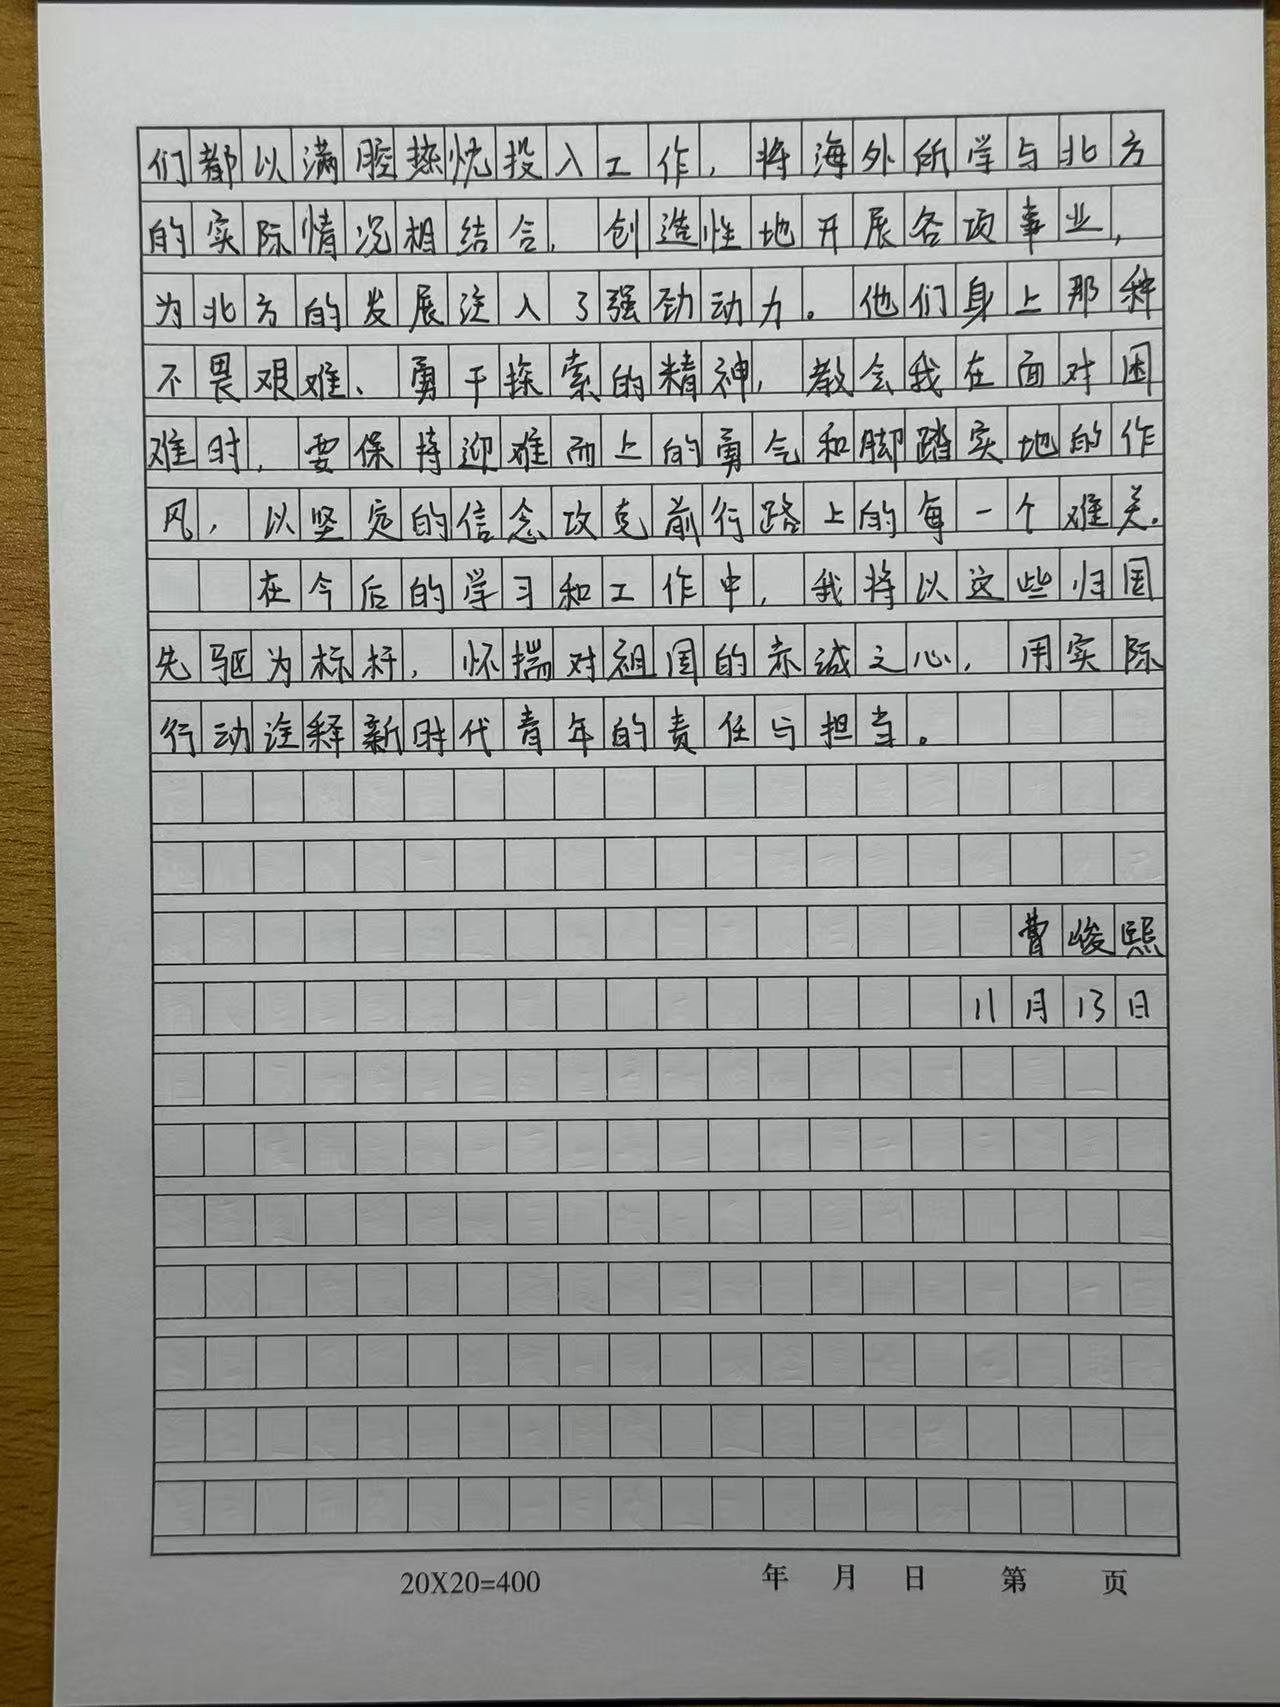 们都以满腔热忱投入工作，将海外所学与北方
的实际情况相结合，创造性地开展各项事业，
为北方的发展注入了强劲动力。他们身上那种
不畏艰难、勇于探索的精神，教会我在面对困
难时，要保持迎难而上的勇气和脚踏实地的作
风，以坚定的信念攻克前行路上的每一个难关。
在今后的学习和工作中，我将以这些归国
先驱为标杆，怀揣对祖国的赤诚之心，用实际
行动诠释新时代青年的责任与担当。
曹峻熙
11月13日
20X20=400 年 月 日 第 页